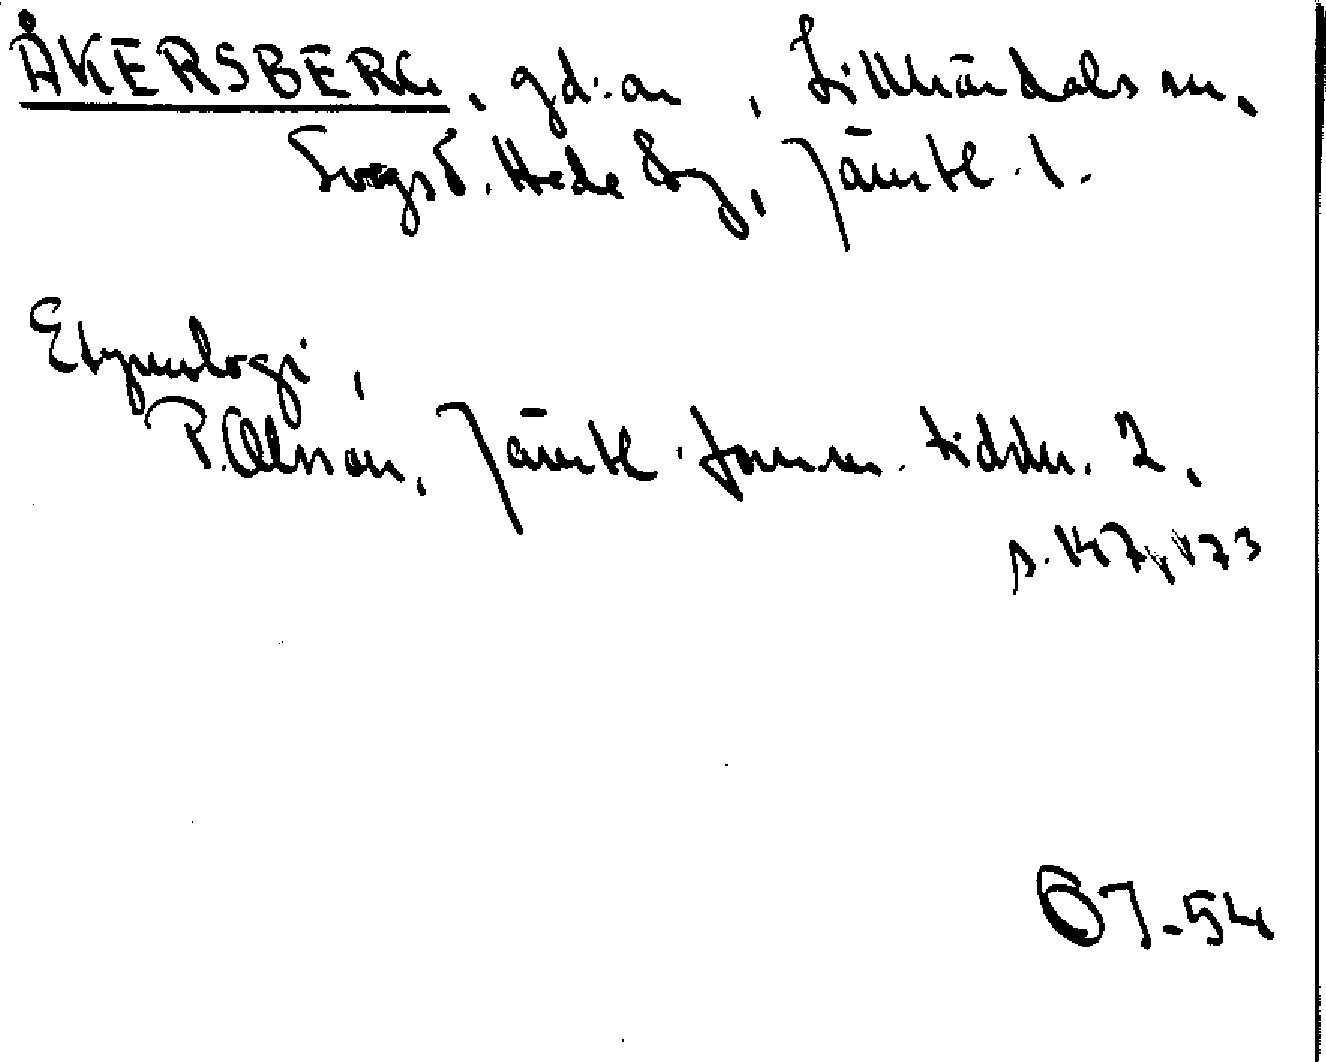 ÅKERSBERG, gd:ar, Lillhärdals sn,
Svegs o. Hede dsg, Jämtl. l.
Etymologi,
P. Olsson, Jämtl. fornm. tidskr. 2,
s. 147, 173
67-54